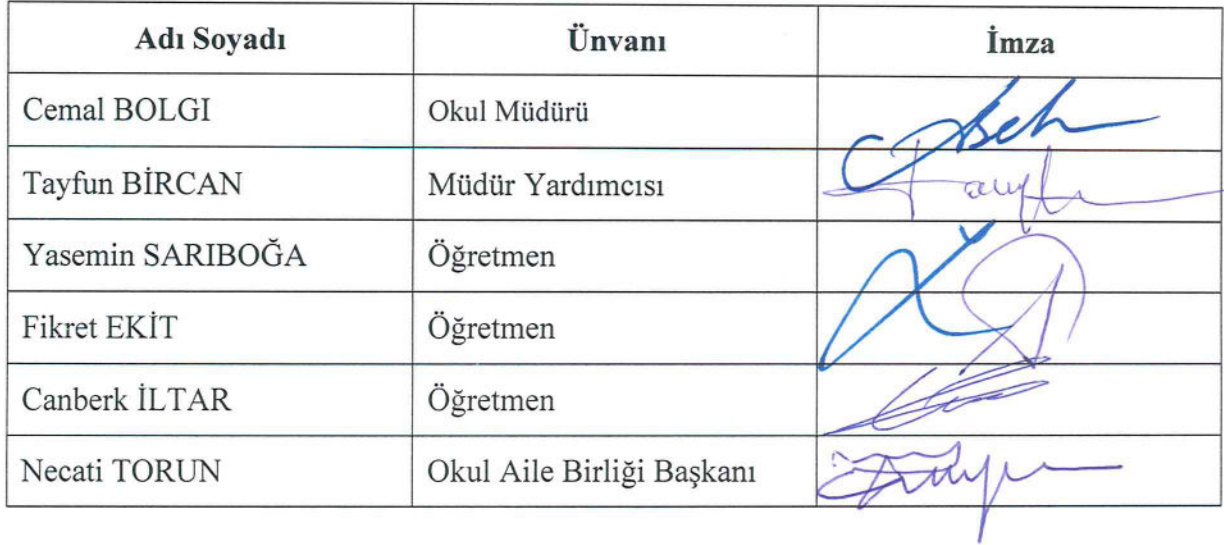 Adı Soyadı Ünvanı İmza
Cemal BOLGI Okul Müdürü
Tayfun BİRCAN Müdür Yardımcısı
Yasemin SARIBOĞA Öğretmen
Fikret EKİT Öğretmen
Canberk İLTAR Öğretmen
Necati TORUN Okul Aile Birliği Başkanı